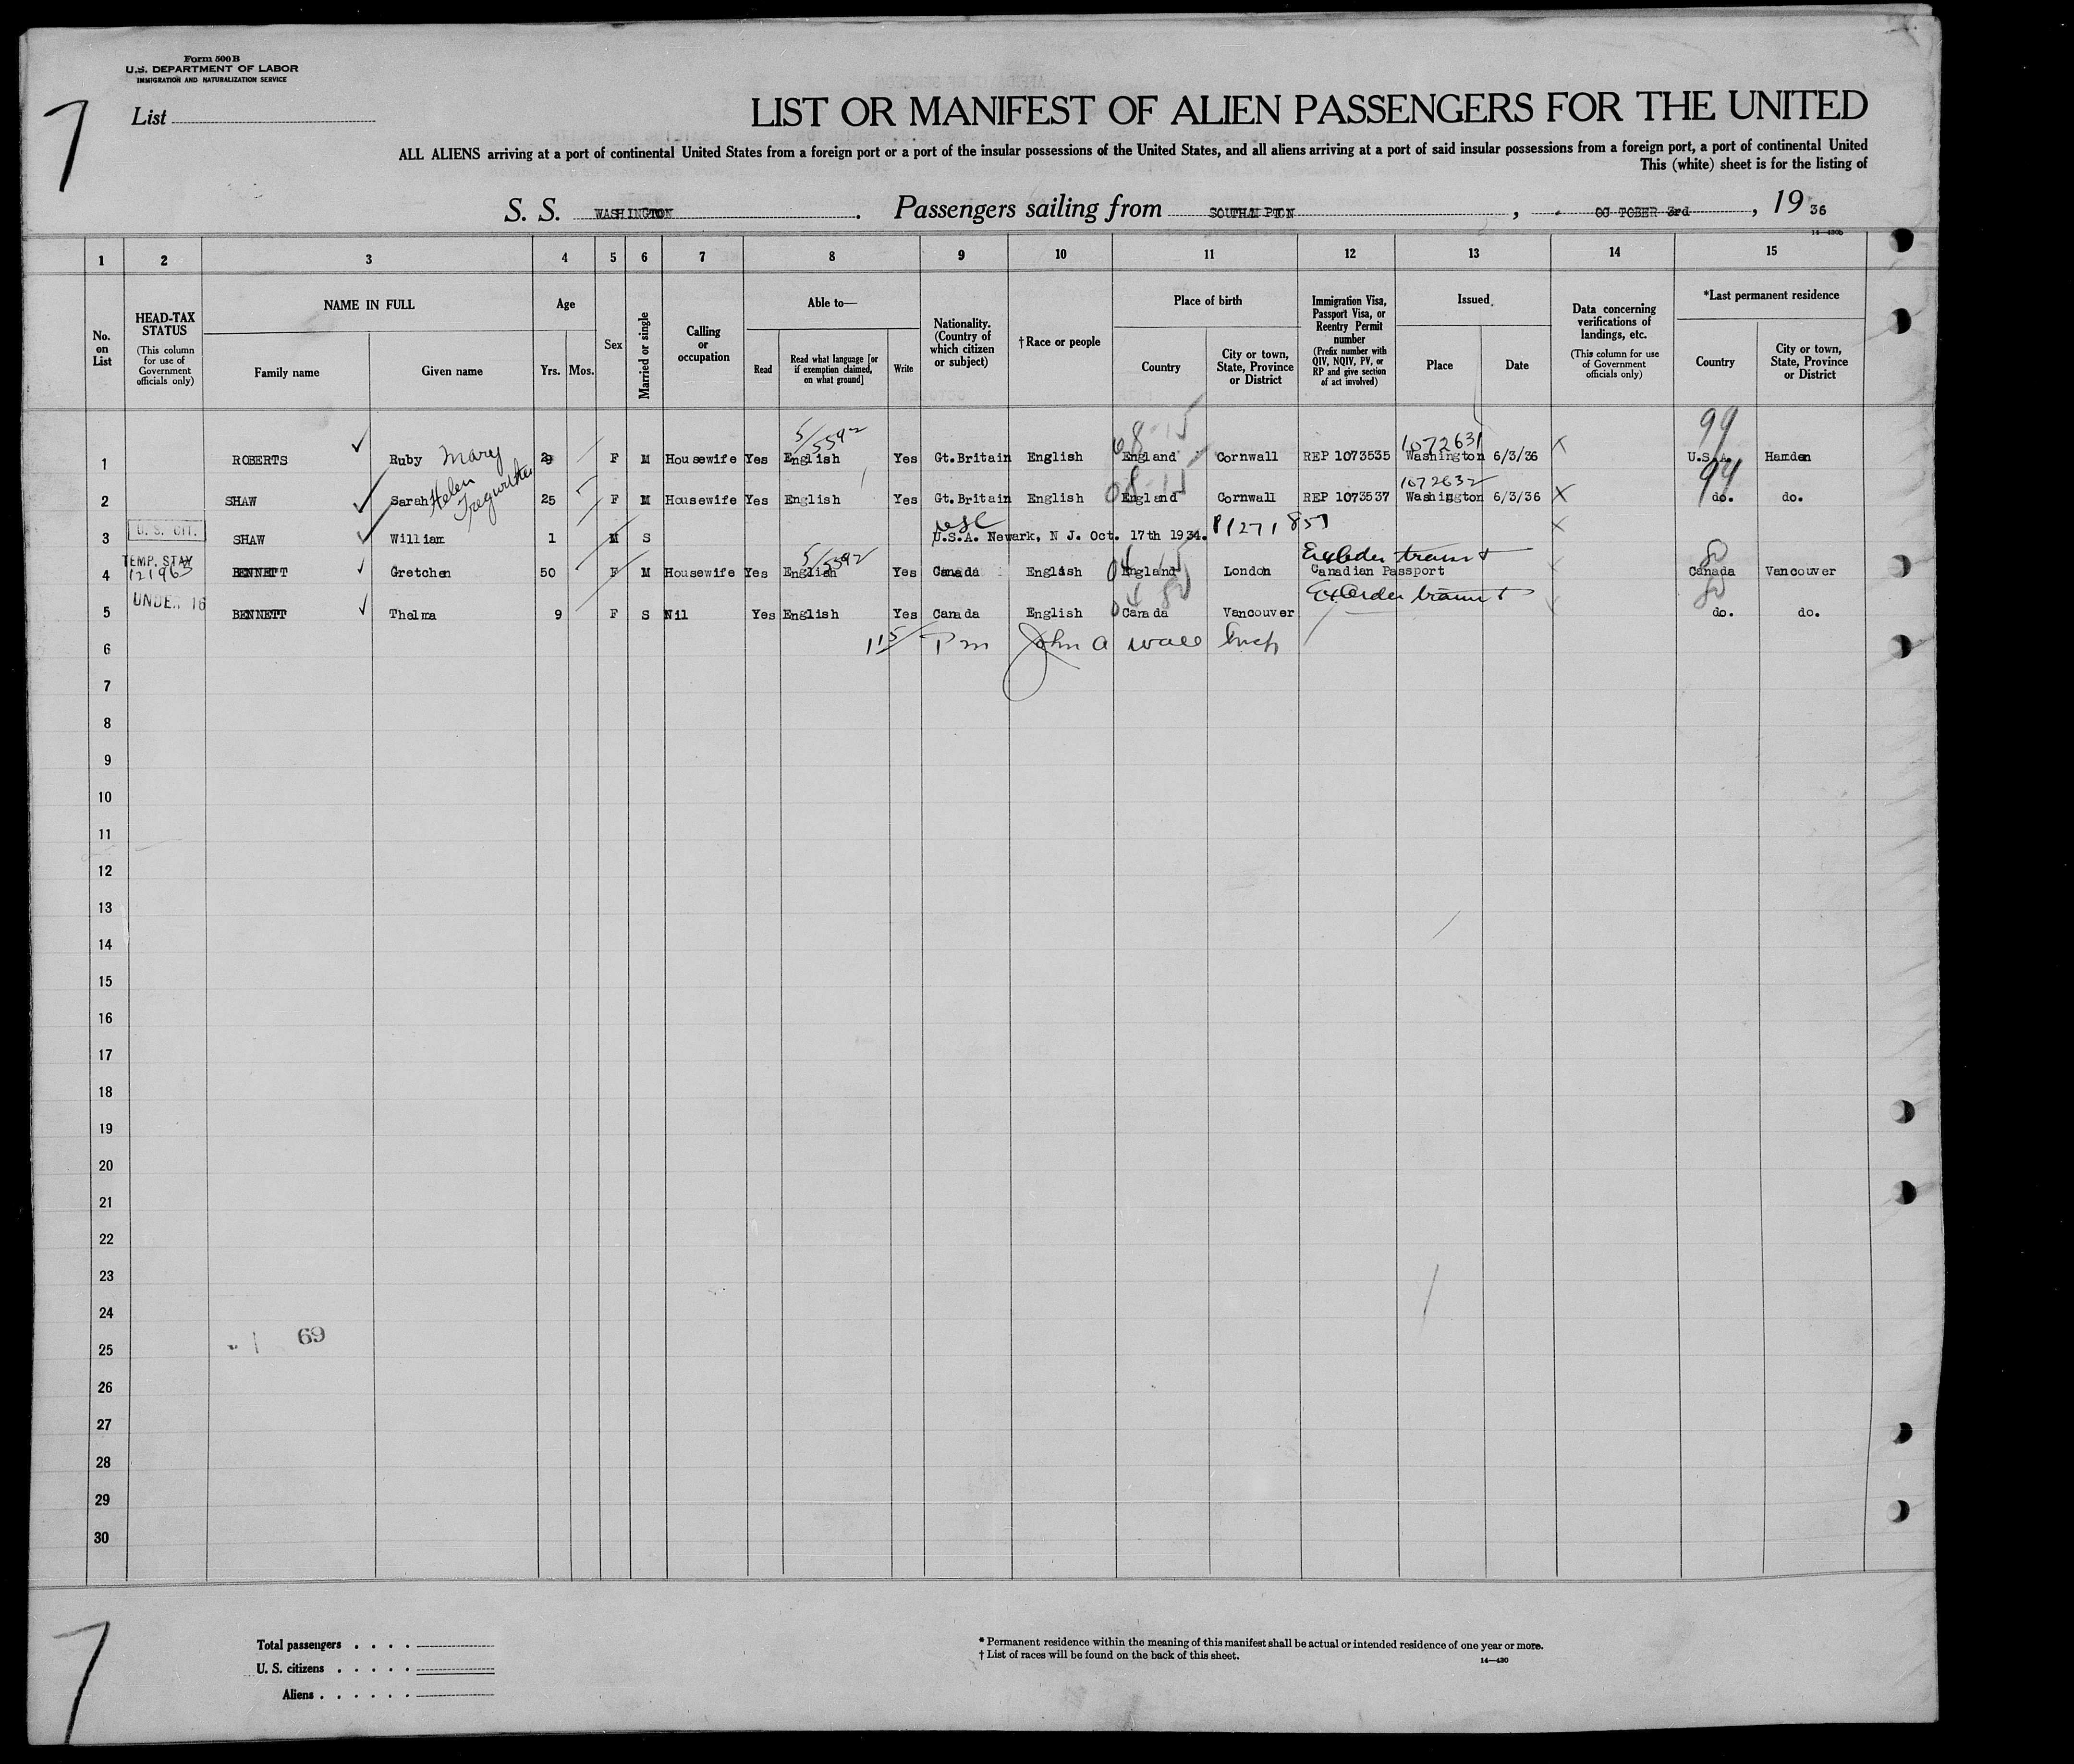 Form 500 B
U.S. DEPARTMENT OF LABOR
IMMIGRATION AND NATURALIZATION SERVICE
7
List
LIST OR MANIFEST OF ALIEN PASSENGERS FOR THE UNITED
ALL ALIENS arriving at a port of continental United States from a foreign port or a port of the insular possessions of the United States, and all aliens arriving at a port of said insular possessions from a foreign port, a port of continental United
This (white) sheet is for the listing of
S. S. WASHINGTON. Passengers sailing from SOUTHAMPTON, OCTOBER 3rd, 1936
14—430b
1 2 3 4 5 6 7 8 9 10 11 12 13 14 15
No. on List
HEAD-TAX STATUS (This column for use of Government officials only)
NAME IN FULL
Family name Given name
Age
Yrs. Mos.
Sex
Married or single
Calling or occupation
Able to—
Read Read what language [or if exemption claimed, on what ground] Write
Nationality. (Country of which citizen or subject)
†Race or people
Place of birth
Country City or town, State, Province or District
Immigration Visa, Passport Visa, or Reentry Permit number (Prefix number with QIV, NQIV, PV, or RP and give section of act involved)
Issued
Place Date
Data concerning verifications of landings, etc. (This column for use of Government officials only)
*Last permanent residence
Country City or town, State, Province or District
5/5592 08-15 1072631 99
1 ROBERTS Ruby Mary F M Housewife Yes English Yes Gt.Britain English England Cornwall REP 1073535 Washington 6/3/36 U.S.A. Hamden
Helen 08-15 1072632 99
2 SHAW Sarah 25 F M Housewife Yes English Yes Gt.Britain English England Cornwall REP 1073537 Washington 6/3/36 do. do.
U. S. CIT. USC
3 SHAW William 1 M S U.S.A. Newark, N J. Oct. 17th 1934.
TEMP. STAY 121963 5/5592 80
4 BENNETT Gretchen 50 F M Housewife Yes English Yes Canada English England London Canadian Passport Canada Vancouver
UNDER 16 80
5 BENNETT Thelma 9 F S Nil Yes English Yes Canada English Canada Vancouver do. do.
6 115 Pm John A Wall Insp
7
8
9
10
11
12
13
14
15
16
17
18
19
20
21
22
23
24
69
25
26
27
28
29
30
7
Total passengers . . . .
U. S. citizens . . . . .
Aliens . . . . . .
* Permanent residence within the meaning of this manifest shall be actual or intended residence of one year or more.
† List of races will be found on the back of this sheet.
14—430